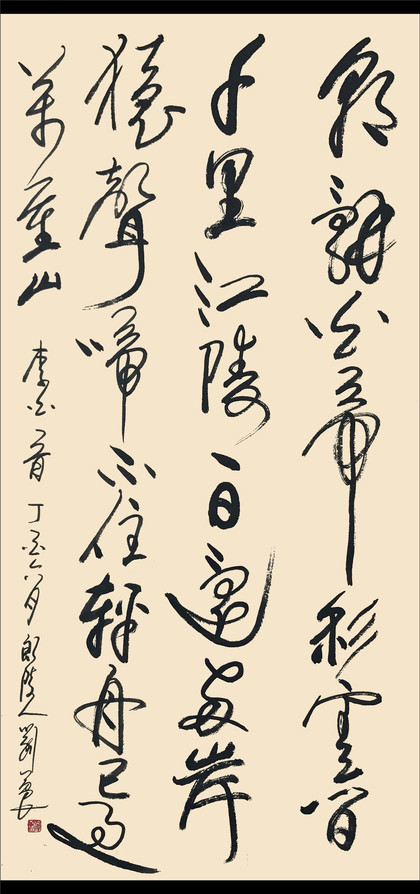 朝辭白帝彩雲間
千里江陵一日還兩岸
猿聲啼不住輕舟已過
萬重山 李白一首 丁 月 陵人劉